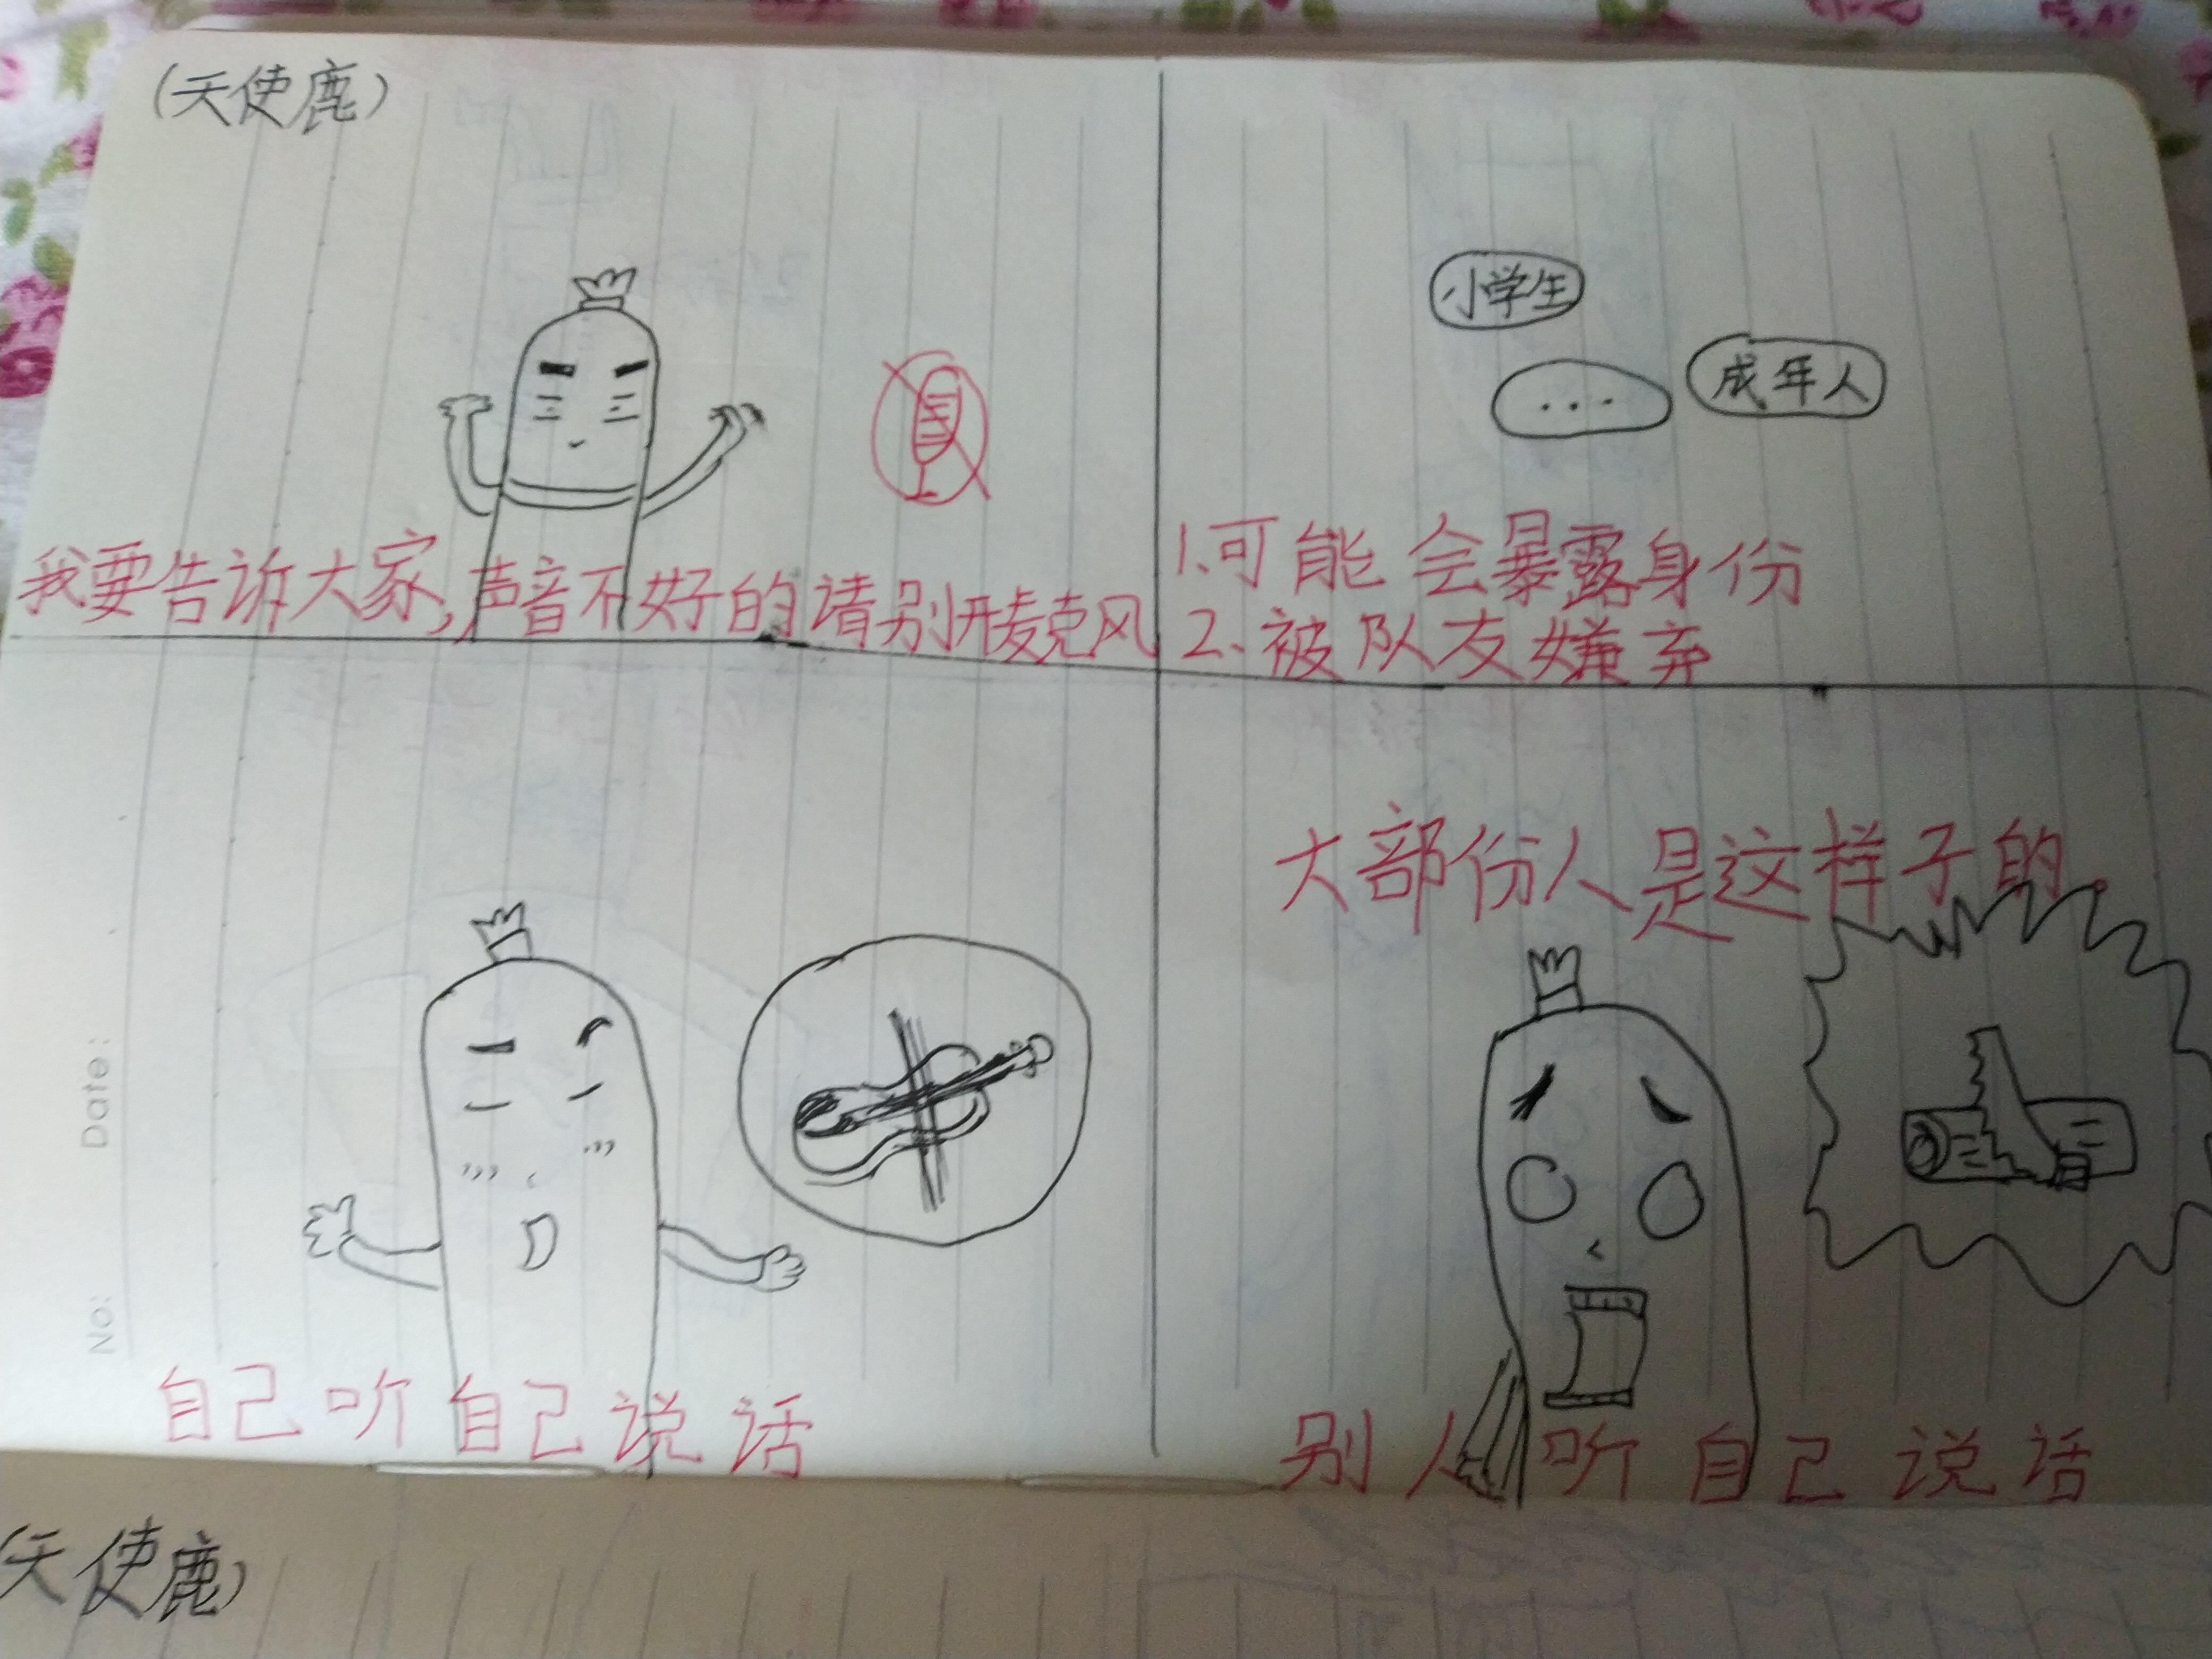 (天使鹿)
我要告诉大家,声音不好的请别开麦克风
小学生
...
成年人
1.可能会暴露身份
2、被队友嫌弃
自己听自己说话
大部份人是这样子的
别人听自己说话
Date:
No:
(天使鹿)